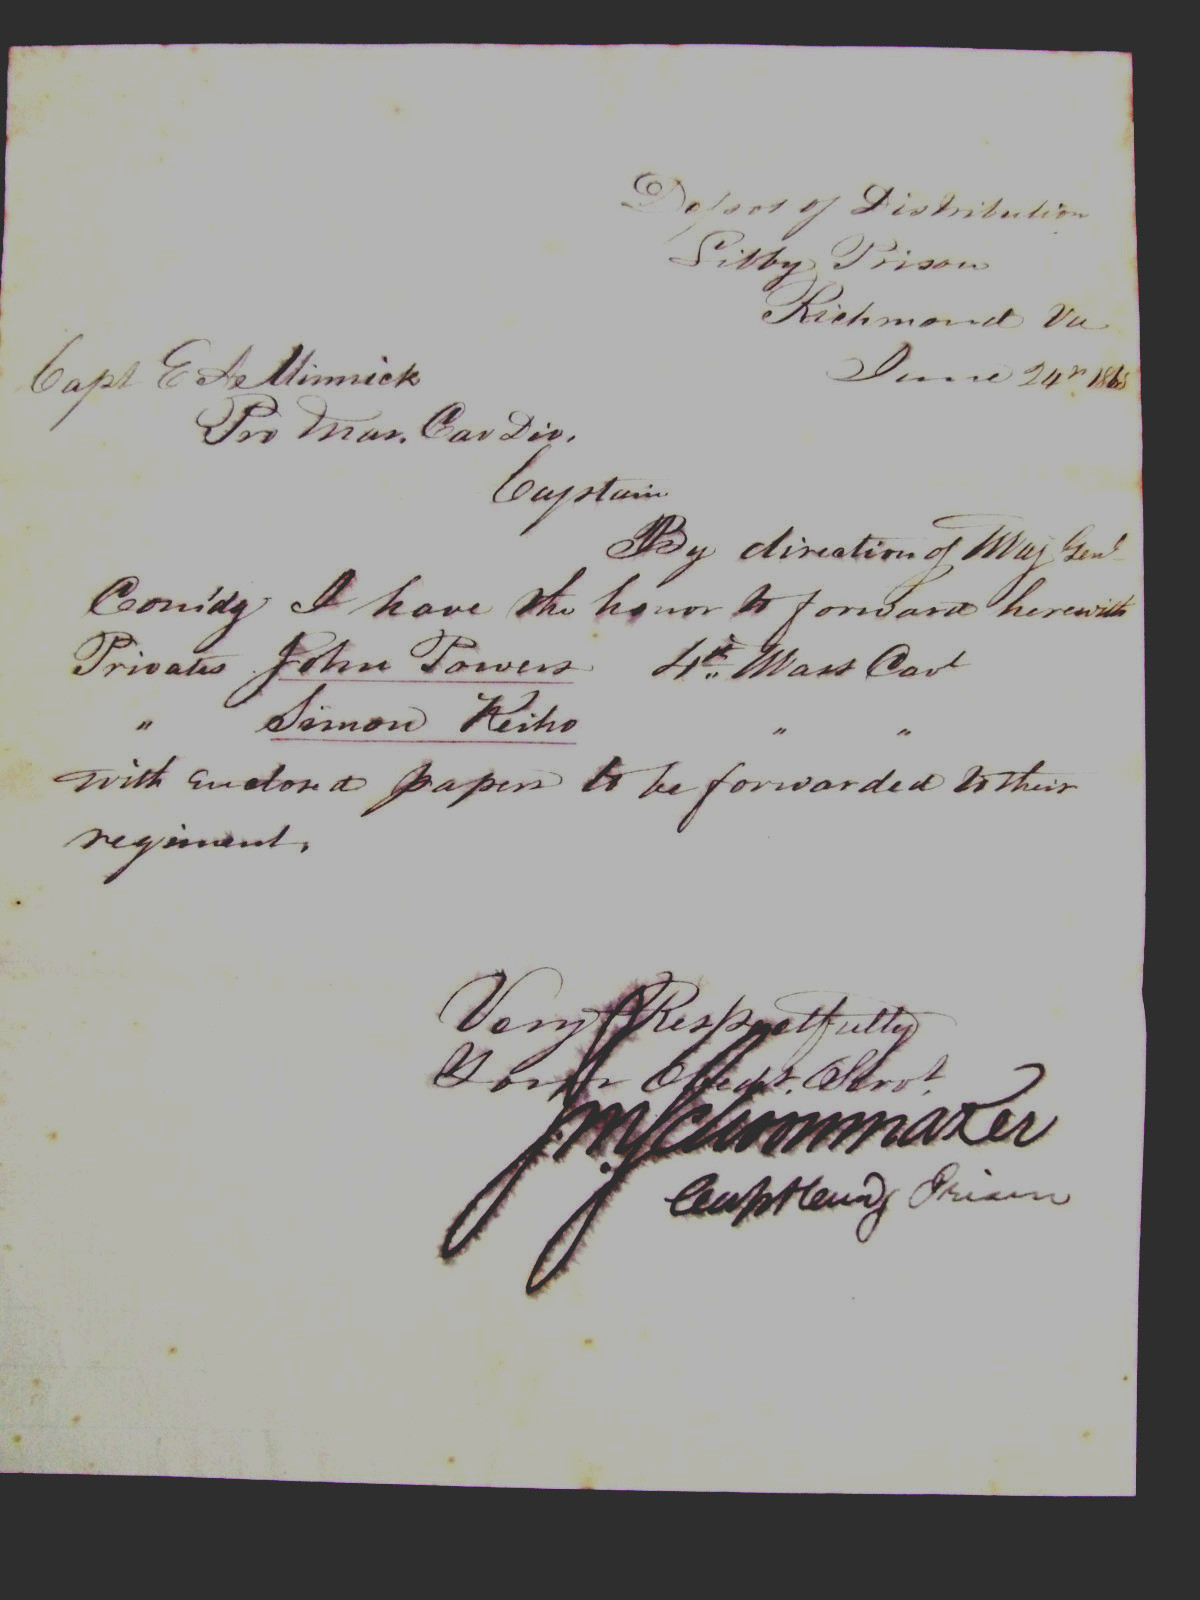 Depot of Distribution
Libby Prison
Richmond Va
June 24" 1865
Capt E A Minnick
Pro Mar. Cav Div.
Captain
By direction of Maj Genl
Comdg I have the honor to forward herewith
Privates John Powers 4th Mass Cav
" Simon Keiho " "
with enclosed papers to be forwarded to their
regiment.
Very Respectfully
Your Obedt. Servt.
J. M. Schoonmaker
Capt Comdg Prison